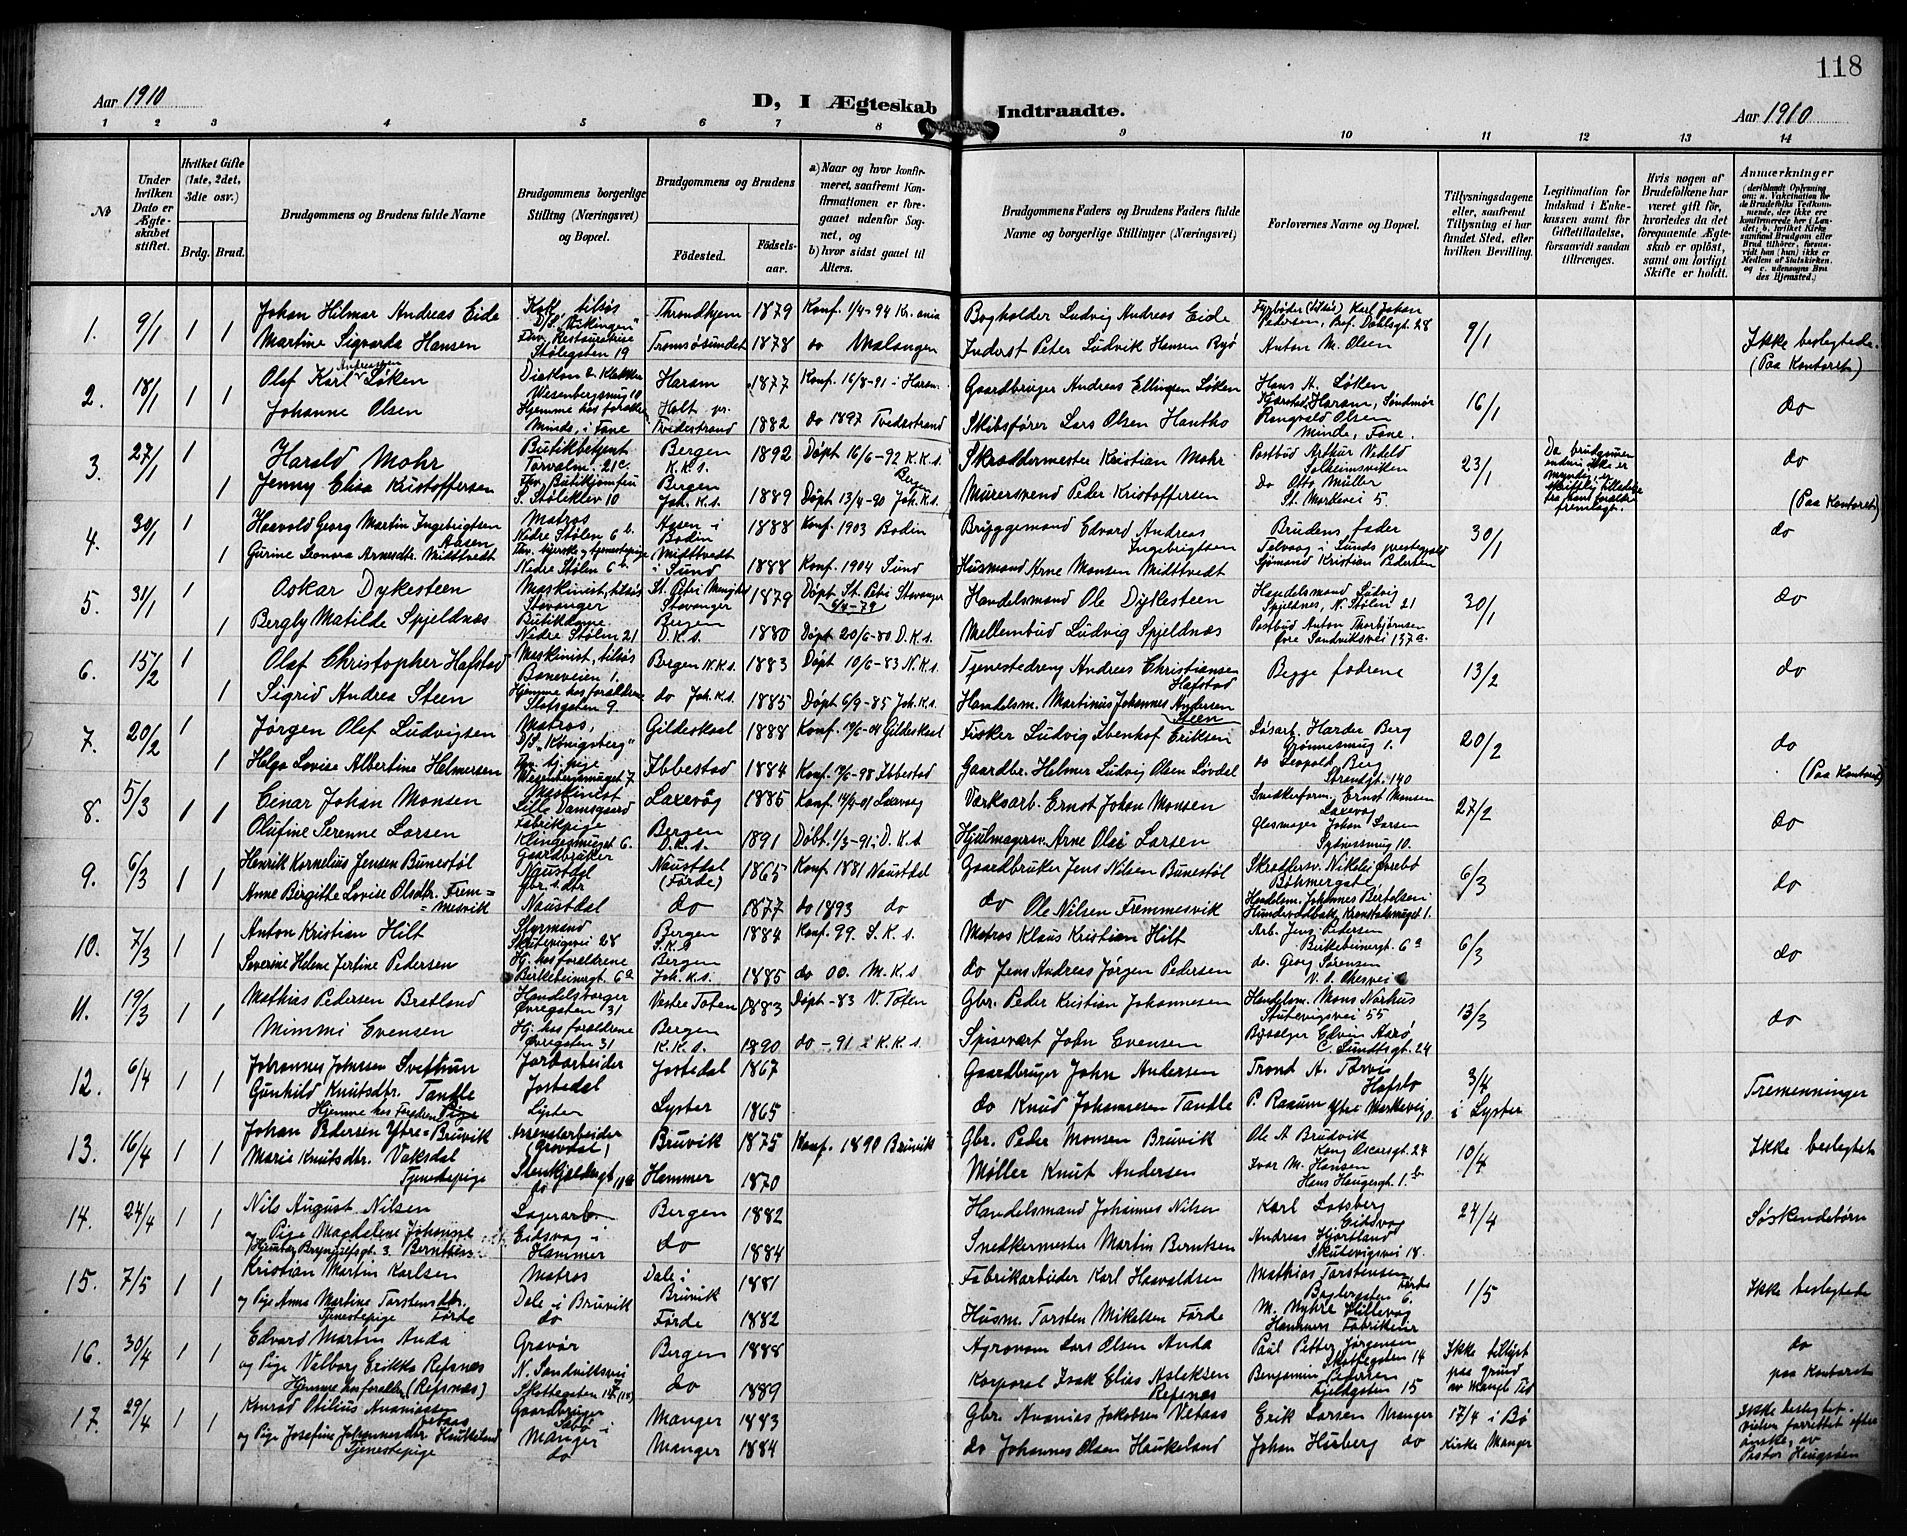 118
Aar 1910
D, I Ægteskab Indtraadte.
Aar 1910
1 2 3 4 5 6 7 8 9 10 11 12 13 14
№
Under hvilken Dato er Ægteskabet stiftet.
Hvilket Gifte (1ste, 2det, 3die osv.)
Brdg. Brud.
Brudgommens og Brudens fulde Navne
Brudgommens borgerlige Stilling (Næringsvei) og Bopæl.
Brudgommens og Brudens
Fødested.
Fødselsaar.
a) Naar og hvor konfirmeret, saafremt Konfirmationen er foregaaet udenfor Sognet, og
b) hvor sidst gaaet til Alters.
Brudgommens Faders og Brudens Faders fulde Navne og borgerlige Stillinger (Næringsvei)
Forlovernes Navne og Bopæl.
Tillysningsdagene eller, saafremt Tillysning ei har fundet Sted, efter hvilken Bevilling.
Legitimation for Indskud i Enkekassen samt for Giftetilladelse, forsaavidt saadan tiltrænges.
Hvis nogen af Brudefolkene har været gift før, hvorledes da det foregaaende Ægteskab er opløst, samt om lovligt Skifte er holdt.
Anmærkninger
1. 9/1 1 1 Johan Hilmar Andreas Eide Kok, tilsøs D/S. "Vikingen" Throndhjem 1879 Konf. 1/4-94 Kr.ania Bogholder Ludvig Andreas Eide Fyrbøder (tilsøs) Karl Johan Pedersen, Prof. Dahlsgt. 28 9/1 Ikke beslegtede.
Martine Sigvarda Hansen Fhv. Restauratrise Stølegaten 19 Tromsøsundet 1878 do Malangen Inderst Peter Ludvik Hansen Ryø Anton M. Olsen (Paa Kontoret)
2. 18/1 1 1 Olaf Karl Andreassen Løken Diakon & Klokker Wesenbergsmug 10 Haram 1877 Konf. 16/8-91 i Haram Gaardbruger Andreas Ellingsen Løken Hans A. Løken Haram, Søndmør 16/1 do
Johanne Olsen Hjemme hos foraldre Minde, i Fane Holt pr. Tvedestrand 1882 do 1897 Tvedestrand Skibsfører Lars Olsen Hantho Rangvald Olsen Minde, Fane.
3. 27/1 1 Harald Mohr Butikbetjent Torvalm. 21c. Bergen K.K.s. 1892 Døpt 16/6-92 K.K.s. Skræddermester Kristian Mohr Postbud Arthur Vedeld Solheimsviken 23/1 Da brudgommen endnu ikke er myndig, er skriftlig tilladelse fra hans forældre fremlagt. do
1 Jenny Elisa Kristoffersen Fhv. Butikjomfru S. Støleklev 10 Bergen Joh. K.s. 1889 Døpt 13/4-90 Joh. K.s. Murersvend Peder Kristoffersen Do Otto Müller St. Markevei 5. (Paa Kontoret)
4. 30/1 1 Haavold Georg Martin Ingebrigtsen Aasen Matros Nedre Stølen 6b. Aasen i Bodin 1888 Konf. 1903 Bodin Bryggemand Edvard Andreas Ingebrigtsen Brudens fader 30/1 do
1 Gurine Leonora Arnesdtr. Midttvedt Fhv. syerske og tjenestepige Nedre Stølen 6b Midttvedt i Sund 1888 Konf. 1904 Sund Husmand Arne Monsen Midttvedt Telvaag i Sunds prestegjeld Sjømand Kristian Pedersen
5. 31/1 1 Oskar Dykesteen Maskinist, tilsøs Stavanger St. Petri Menighed Stavanger 1879 Døpt St. Petri Stavanger 6/4-79 Handelsmand Ole Dykesteen Handelsmand Ludvig Spjeldnæs, N. Stølen 21 30/1 do
1 Bergly Matilde Spjeldnæs Butikdame Nedre Stølen 21 Bergen D.K.s. 1880 Døpt 20/6-80 D.K.s. Mellembud Ludvig Spjeldnæs Postbud Anton Thorbjørnsen Øvre Sandviksvei 137a.
6. 15/2 1 Olaf Christopher Hafstad Maskinist, tilsøs Baneveien 1. Bergen N.K.s. 1883 Døpt 10/6-83 N.K.s. Tjenestedreng Andreas Christiansen Hafstad Begge fædrene 13/2 do
1 Sigrid Andrea Steen Hjemme hos forældrene Slotsgaten 9. do Joh. K.s. 1885 Døpt 6/9-85 Joh. K.s. Handelsm. Martinus Johannes Andersen Steen
7. 20/2 1 Jørgen Olaf Ludvigsen Matros, D/S. "Königsberg" Gildeskaal 1888 Konf. 19/6-04 Gildeskaal Fisker Ludvig Ibenhof Eriksen Løsarb. Harder Berg Grønnesmug 1. 20/2 do
1 Helga Lovise Albertine Helmersen Fhv. tj. pige Wesenbergsmuget 7 Ibbestad 1884 Konf. 19/6-98 Ibbestad Gaardbr. Helmer Ludvig Olsen Løvdal do Leopold Berg Strandgt. 140 (Paa Kontoret)
8. 5/3 1 1 Einar Johan Monsen Maskinist Lille Damsgaard Laxevåg 1885 Konf. 14/4-01 Laxevaag Værksarb. Ernst Johan Monsen Snedkerform. Ernst Monsen Laxevaag 27/2 do
Olufine Serenne Larsen Fabrikpige Klingesmuget 6. Bergen D.K.s. 1891 Døbt 1/3-91 i D.K.s Hjulmagersv. Arne Olai Larsen Glasmager Johan Larsen Sydnessmug 10.
9. 6/3 1 1 Henrik Kornelius Jensen Bunestøl Gaardbruker Naustdal Naustdal (Førde) 1865 Konf 1881 Naustdal Gaardbruker Jens Nilsen Bunestøl Skræddersv. Nikolai Øvrebø Bøhmergate 6/3 do
Anne Birgitte Lovise Olsdtr. Fremmesvik Gbr.s. dtr Naustdal do 1877 do 1893 do do Ole Nilsen Fremmesvik Handelsm. Johannes Bertelsen Hunderødbak, Kronstadsmuget 1.
10. 7/3 1 1 Anton Kristian Hilt Styrmand Skutevigsvei 28 Bergen 1884 Konf. 99. S.K.s. Matros Klaus Kristian Hilt Arb. Jens Pedersen Birkebeinergt. 6a 6/3 do
Severine Helene Jertine Pedersen Hj. hos forældrene Berkebeinergt. 6a Bergen Joh. K.s. 1885 do 00. M.K.s. do Jens Andreas Jørgen Pedersen do. Georg Sørensen
11. 19/3 1 1 Mathias Pedersen Bratland Handelsborger Øvregaten 31 Vestre Toten 1883 Døpt -83 V. Toten Gbr. Peder Kristian Johannesen Handelsm. Mons Norhus Skutevigsvei 55 13/3 do
Mimmi Evensen Hj. hos forældrene Øvregaten 31 Bergen K.K.s. 1890 do - 91 i K.K.s. Spisevært John Evensen Bysælger Edvin Aarø, C. Sundtsgt. 24
12. 6/4 1 1 Johannes Johnsen Svethun Jordarbeider Jostedal Jostedal 1867 Gaardbruger John Andersen Trond A. Tørvis Hafslo 3/4 i Lyster Tremenninger
Gunhild Knutsdtr. Tandle Hjemme hos Foreldrene Pige Lyster Lyster 1865 do Knud Johannesen Tandle P. Raaum Ytre Markevei 10.
13. 16/4 1 1 Johan Pedersen Ytre-Bruvik Arsenalarbeider Bruvik 1875 Konf. 1890 Bruvik Gbr. Peder Monsen Bruvik Ole A Brudvik Kong Oscarsgt. 24 10/4 Ikke beslegtet
Marie Knutsdtr. Vaksdal Tjenestepige Stenkjeldergt 11a do Hammer 1870 Møller Knut Andersen Ivar M. Hansen Hans Haugesgt. 1b
14. 24/4 1 1 Nils August Nilsen Lagerarb. Bergen 1882 Handelsmand Johannes Nilsen Karl Lotsberg Eidsvaag 24/4 Søskendebørn
og Pige Magdalene Johanne Berntsen Brynjulfsgt. 3 Eidsvag i Hammer do 1884 Snedkermester Martin Berntsen Andreas Hjortland Skutevigsvei 18.
15. 7/5 1 1 Kristian Martin Karlsen Matros Dale i Bruvik 1881 Fabrikarbeider Karl Haavaldsen Mathias Torstensen Førde Baglergaten 6. 1/5 Ikke beslegtede
og Pige Anna Martine Torstensdtr. Førde Tjenestepige Dale i Bruvik do Førde 1882 Husm. Torsten Mikelsen Førde M. Myhre
16. 30/4 1 1 Edvard Martin Anda Gravør N. Sandviksvei Bergen 1888 Agronom Lars Olsen Anda Paul Petter Jørgensen Skottegaten 14 Ikke tillyst paa grund av Mangl. Tid do
og Pige Valborg Erikka Refsnæs Hjemme hos forældre (Refsnæs) Skottegaten 14 do 1889 Korporal Isak Elias Asleksen Refsnæs Benjamin Pedersen Fjeldgaten 15 paa Kontoret
17. 29/4 1 1 Konrad Otilius Ananiassen Vetaas Gaardbruger Manger 1883 Gbr. Ananias Jakobsen Vetaas Erik Larsen Manger 17/4 i Bø Kirke Manger Ikke beslegtet. vielsen forrettet efter ønske, av Pastor Haugsøen
og Pige Josefine Johannesdtr Haukeland Tjenestepige Manger do Manger 1884 do Johannes Olsen Haukeland Johan Husberg do